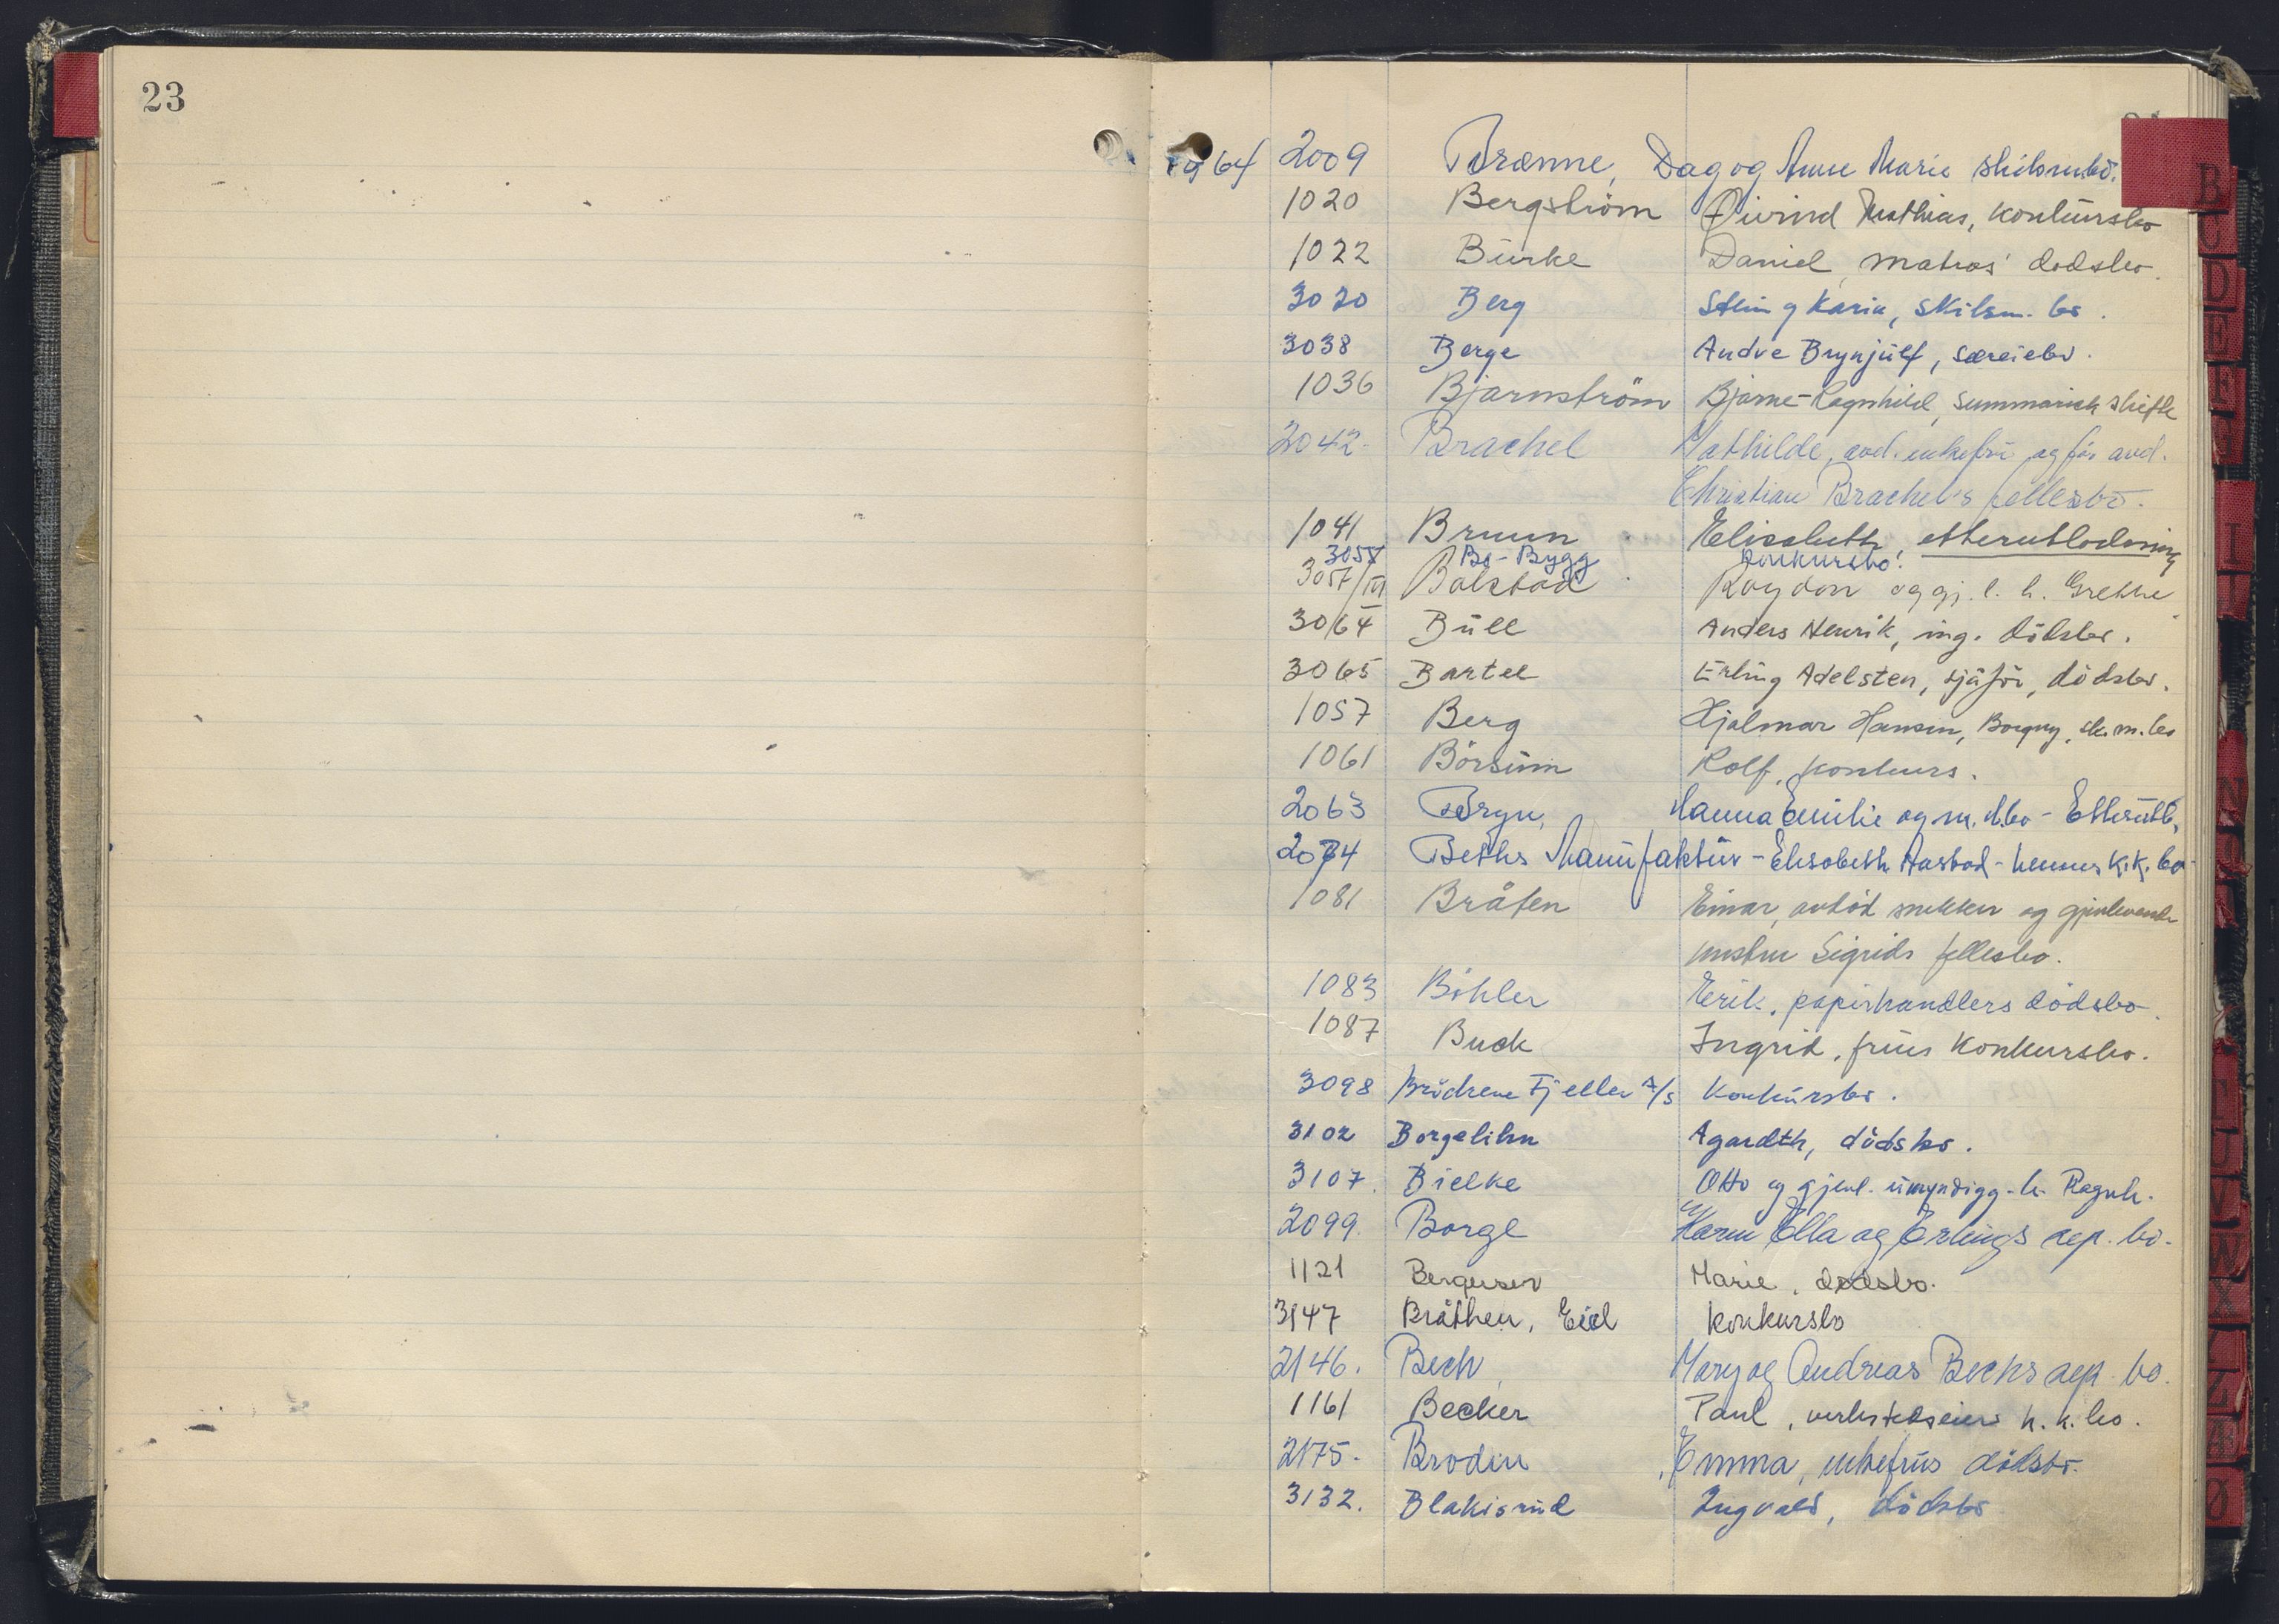 23
1964 2009 Brænne, Dag og Anne Marie skilsm.bo.
B
1020 Bergström Øivind Mathias, konkursbo
1022 Burke Daniel, matros' dødsbo.
3020 Berg og Karin, skilsm. bo.
3038 Berge Andve Brynjulf, særeiebo.
1036 Bjarnström Bjarne - Ragnhild, summarisk skifte
2042 Brachel Mathilde, avd. enkefru og før avd.
Christian Brachel's fellesbo.
1041 Bruun Elisabeth, etterutlodning
3055 Bo-Bygg Konkursbo.
3057/VI Bakstad og gj. l. h. Grethe
3064 Bull Anders Henrik, ing. dödsbo.
3065 Bartel Erling Adelsten, sjåför, dödsbo.
1057 Berg Hjalmar Hansen, Borgny, sk.m.bo
1061 Börsum Rolf, konkurs.
2063 Bryn, Hanna Emilie og m. d.bo - Etterutl.
2074 Beths Manufaktur - Elisabeth Aasbad - hennes k.k. bo
1081 Bråten Einar, avdöd snekker og gjenlevende
hustru Sigrids fellesbo.
1083 Böhler Erik, papirhandlers dödsbo.
1087 Buck Ingrid, frues konkursbo.
3098 Brödrene Fjeller A/S Konkursbo.
3102 Borgelihn Agardth, dödsbo.
3107. Bielke Otto og gjenl. umyndigg. h. Ragnh.
2099. Borge Karen Ella og Erlings sep. bo.
1121 Bergersen Marie, dødsbo.
3147 Bråthen, Eid konkursbo
2146. Bech, Mary og Andreas Bechs sep. bo.
1161 Becker Paul, verkstedseiers k.k. bo.
2175. Brodin Emma, enkefrus dödsbo.
3132. Blakisrud Ingvald, dödsbo